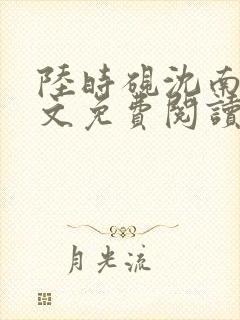 陸時硯沈南
文免費閱讀
月光流